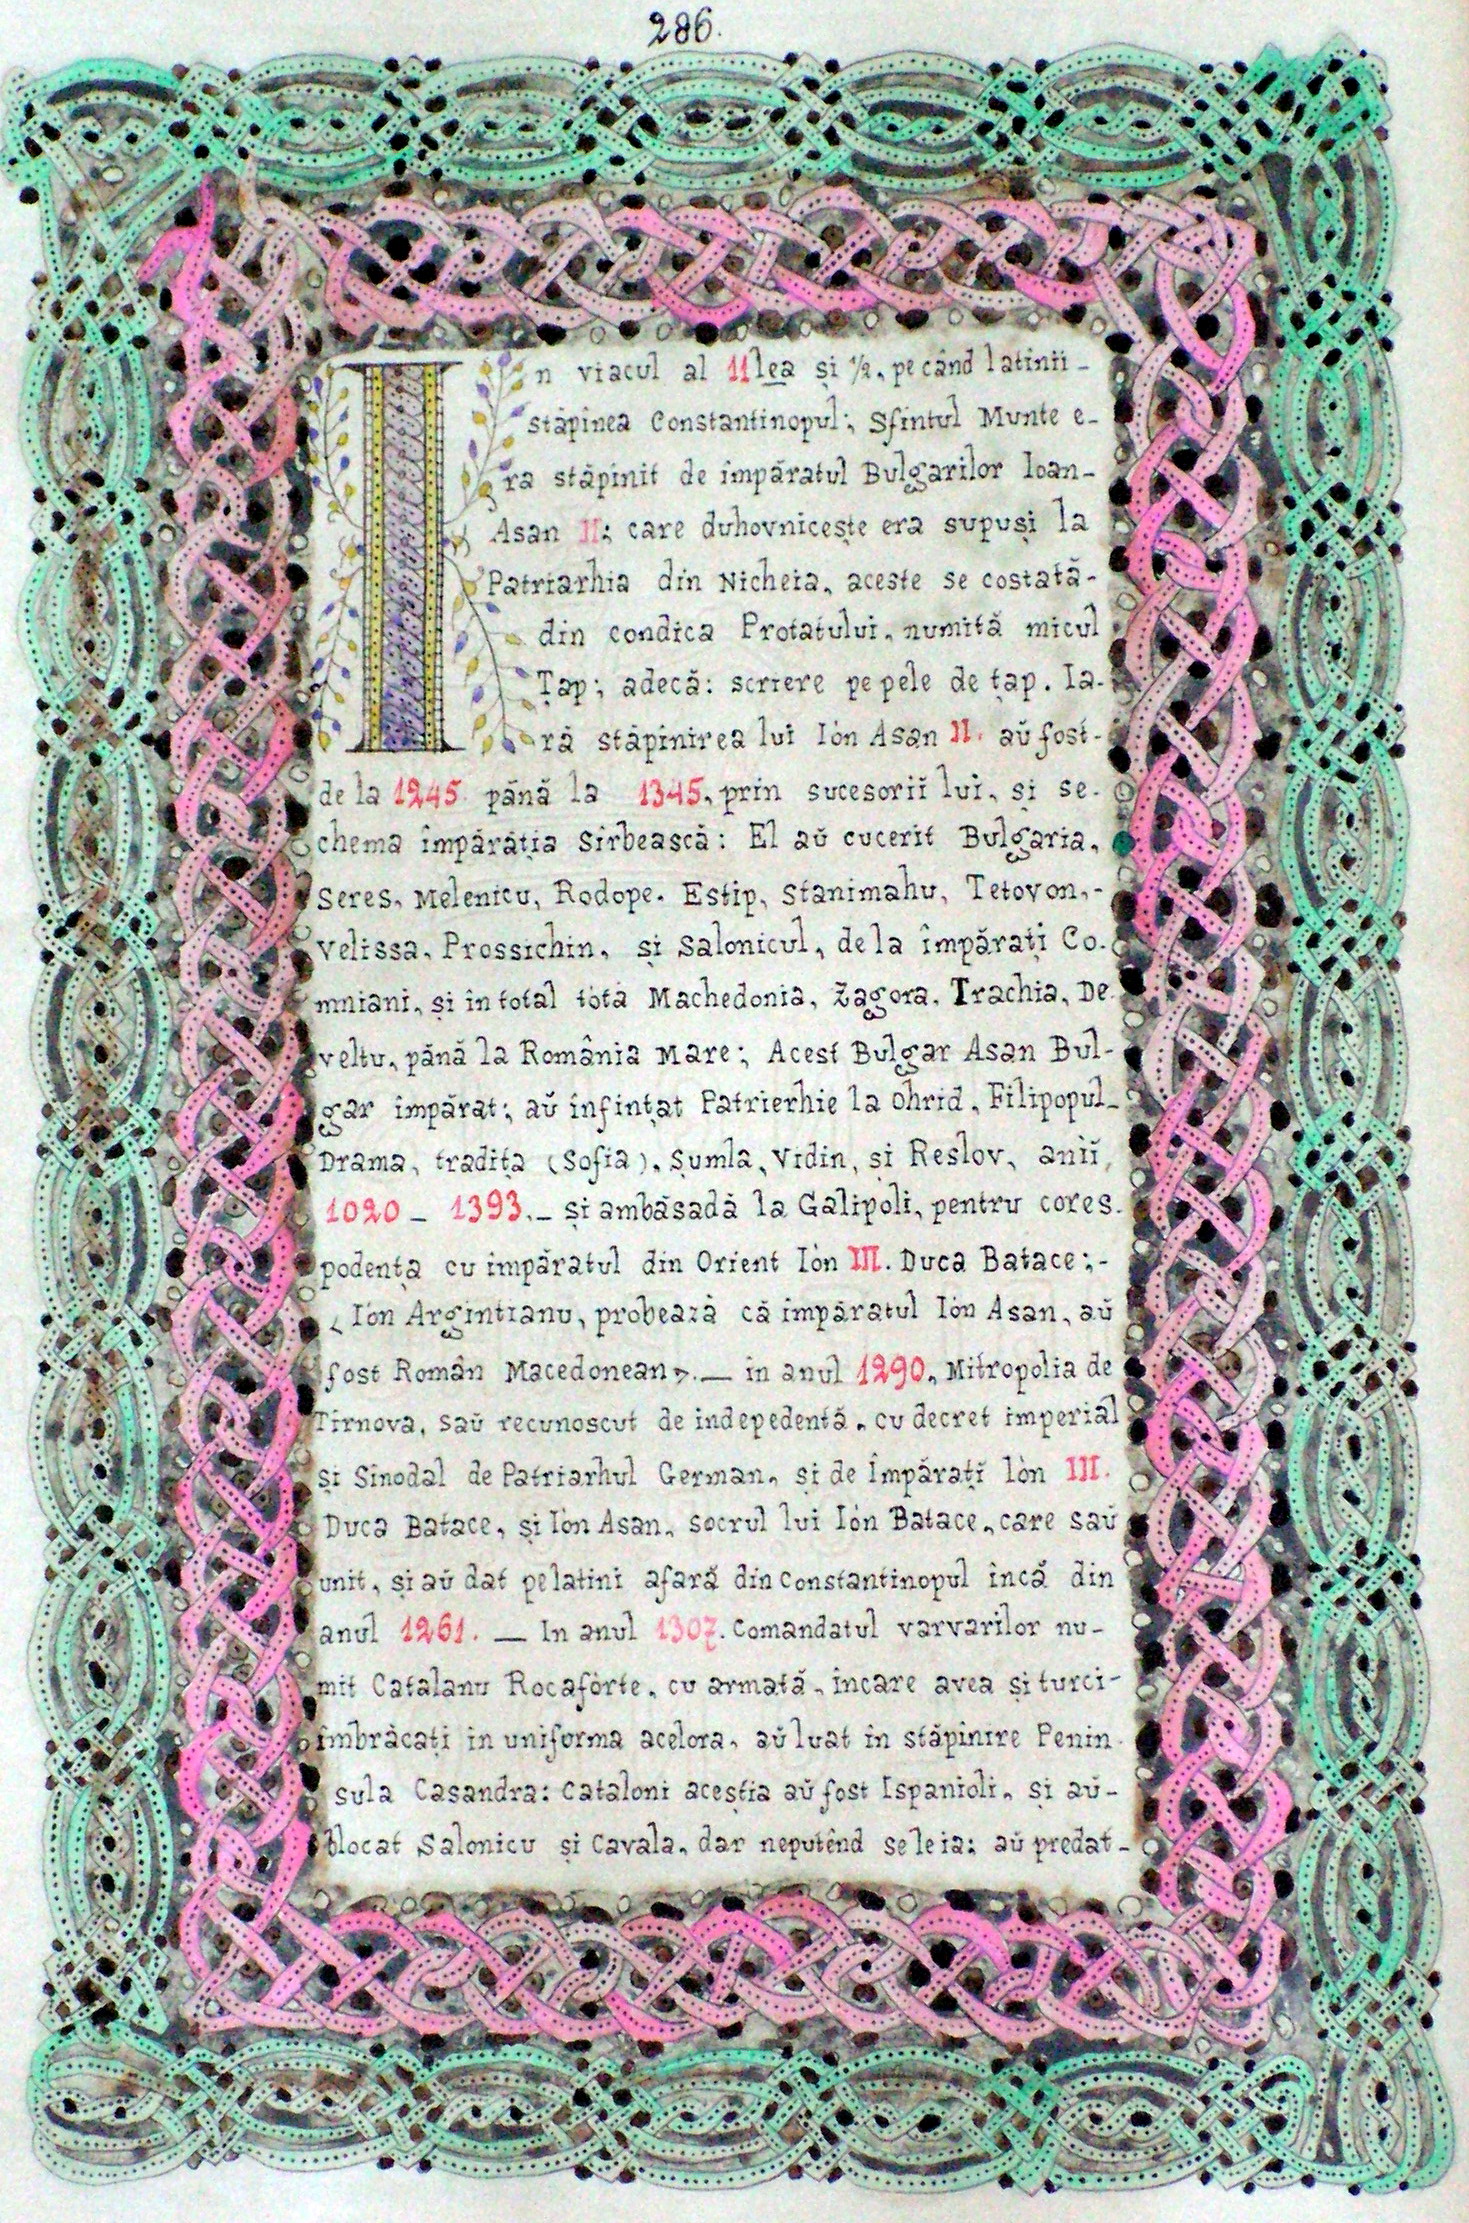 286.
In viacul al 11lea și ½, pe când latinii-
stăpinea Constantinopul; Sfintul Munte e-
ra stăpinit de împăratul Bulgarilor Ioan-
Asan II; care duhovnicește era supuși la
Patriarhia din Nicheia, aceste se costată-
din condica Protatului, numită micul
Țap; adecă: scriere pe pele de țap. Ia-
ră stăpinirea lui Iòn Asan II. aŭ fost-
de la 1245 până la 1345, prin sucesoriĭ lui, și se-
chema împărăția Sîrbească: El aŭ cucerit Bulgaria,
Seres, Melenicu, Rodope. Estip, Stanimahu, Tetovon,-
Velissa, Prossichin, și Salonicul, de la împărați Co-
mniani, și in total tòtă Machedonia, Zagora, Trachia, De
veltu, până la România Mare; Acest Bulgar Asan Bul-
gar împărat; aŭ înfințat Patrierhie la Ohrid, Filipopul-
Drama, tradița (Sofia), Șumla, Vidin, și Reslov, aniĭ,
1020 - 1393.- și ambăsadă la Galipoli, pentru cores-
podența cu impăratul din Orient Iòn III. Duca Batace;-
‹ Iòn Argintianu, probează că împăratul Iòn Asan, aŭ
fost Român Macedonean ›.— in anul 1290, Mitropolia de
Tîrnova, saŭ recunoscut de indepedentă, cu decret imperial
și Sinodal de Patriarhul German, si de Împărațĭ Iòn III.
Duca Batace, și Iòn Asan, socrul lui Iòn Batace, care saŭ
unit, și aŭ dat pe latini afară din Constantinopul încă din
anul 1261. — In anul 1307. Comandatul varvarilor nu-
mit Catalanu Rocafòrte, cu armată, incare avea si turci-
îmbrăcați in uniforma acelora, aŭ luat in stăpinire Penin-
sula Casandra: Cataloni aceștia aŭ fost Ispanioli, și aŭ-
blocat Salonicu și Cavala, dar neputênd se le ia; aŭ predat-